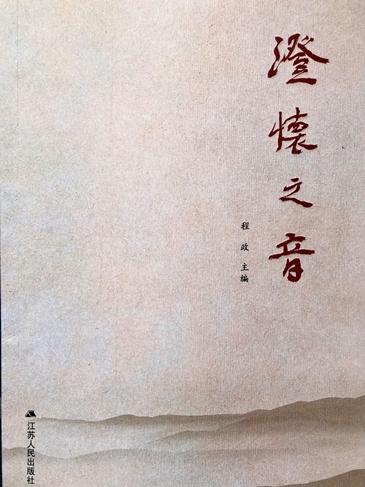 澄懷之音
程政 主编
江苏人民出版社